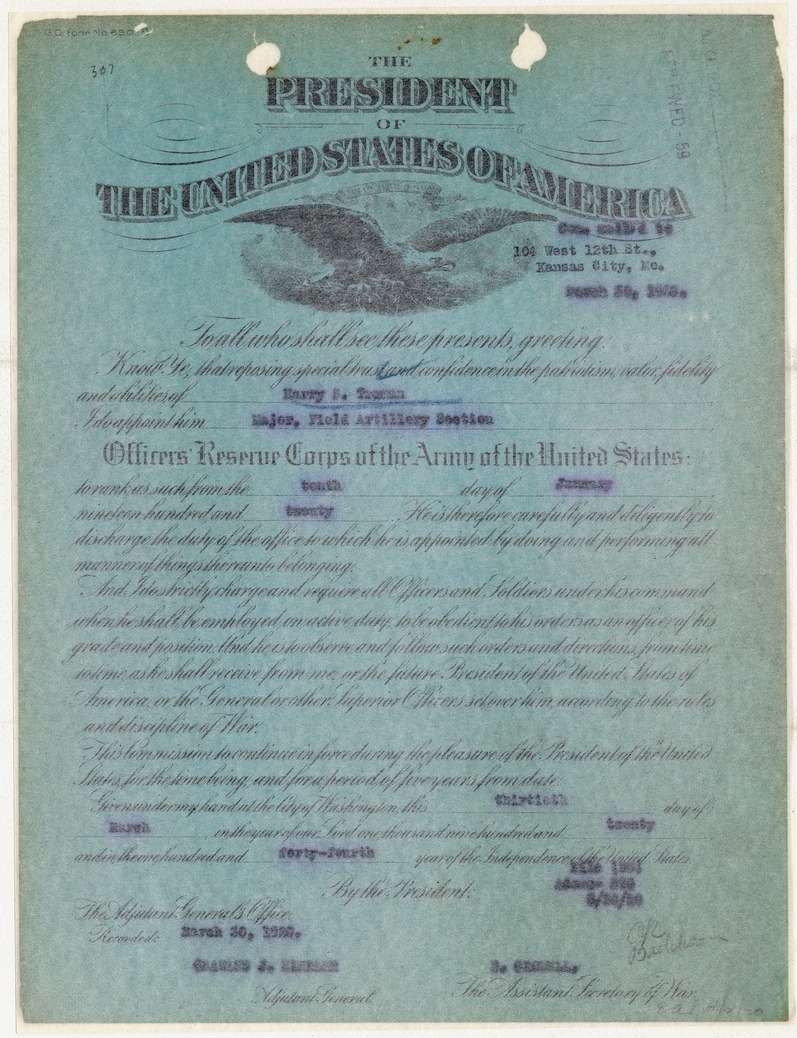 G.O. Form No. 650
307
THE
PRESIDENT
OF
THE UNITED STATES OF AMERICA
Com. mailed to
104 West 12th St.,
Kansas City, Mo.
March 30, 1920.
To all who shall see these presents, greeting:
Know Ye, that reposing special trust and confidence in the patriotism, valor, fidelity
and abilities of Harry S. Truman
I do appoint him Major, Field Artillery Section
Officers' Reserve Corps of the Army of the United States:
to rank as such from the tenth day of January
nineteen hundred and twenty. He is therefore carefully and diligently to
discharge the duty of the office to which he is appointed by doing and performing all
manner of things thereunto belonging.
And, I do strictly charge and require all Officers and Soldiers under his command
when he shall be employed on active duty to be obedient to his orders as an officer of his
grade and position. And he is to observe and follow such orders and directions, from time
to time, as he shall receive from me, or the future President of the United States of
America, or the General or other Superior Officers set over him, according to the rules
and discipline of War.
This Commission to continue in force during the pleasure of the President of the United
States, for the time being, and for a period of five years from date.
Given under my hand at the City of Washington, this thirtieth day of
March, in the year of our Lord one thousand nine hundred and twenty
and in the one hundred and forty-fourth year of the Independence of the United States.
By the President:
The Adjutant General's Office,
Recorded: March 30, 1920.
Adjutant General.
The Assistant Secretary of War.